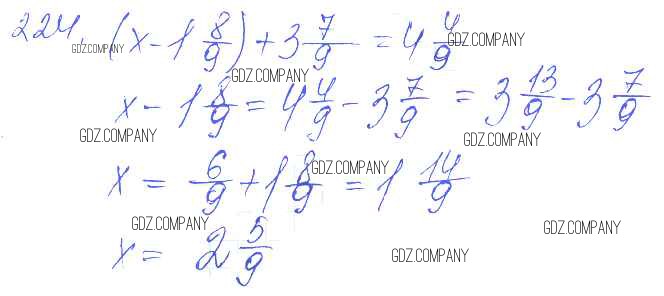 224. (x - 1 8/9) + 3 7/9 = 4 4/9
GDZ.COMPANY GDZ.COMPANY
GDZ.COMPANY
x - 1 8/9 = 4 4/9 - 3 7/9 = 3 13/9 - 3 7/9
GDZ.COMPANY GDZ.COMPANY
x = 6/9 + 1 8/9 = 1 14/9
GDZ.COMPANY
GDZ.COMPANY GDZ.COMPANY
x = 2 5/9
GDZ.COMPANY